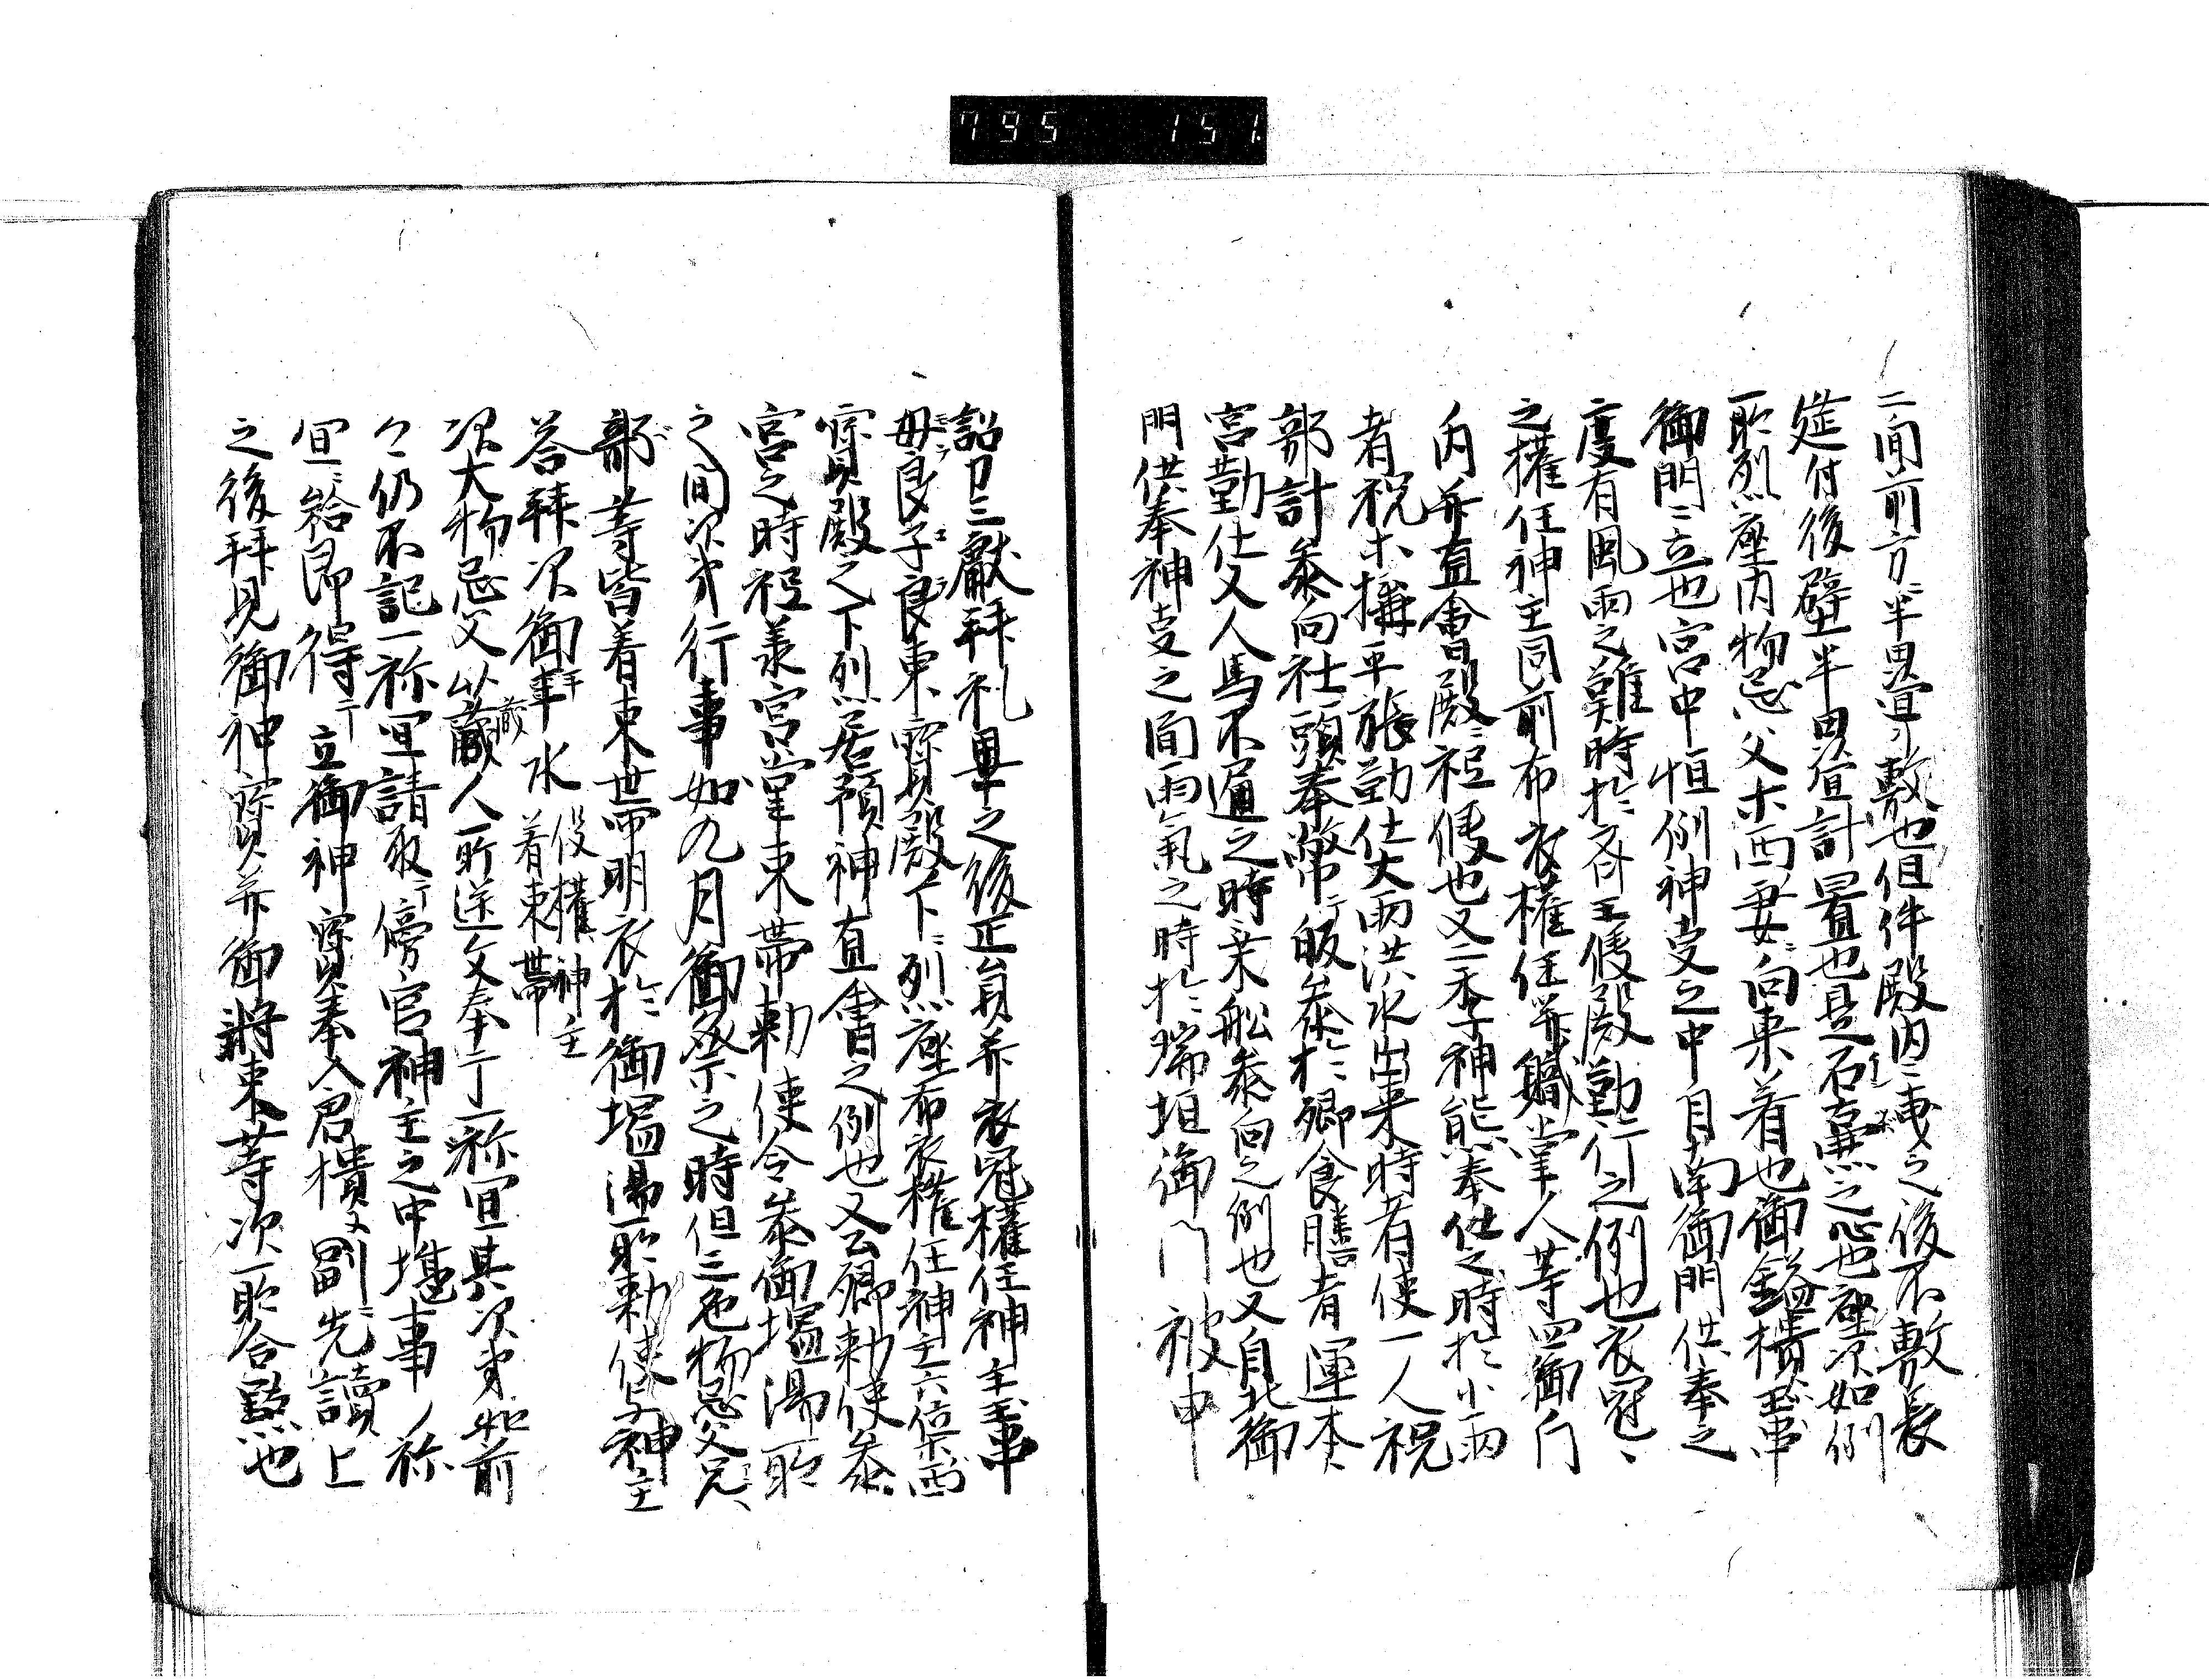 795 151
二間前方半畳寻敷也但件殿内曳之後不敷長
莚付後壁半畳計置也是石壷之心也座次如例
一所烈座内物忌父木西妻向東着也御鎰樻玉串
御門立也宮中恒例神支之中自南御門供奉之
度有風雨之難時於斉王候殿勤行之例也衣冠
之權任神主同前布衣權任并職掌人等四御門
内并直會殿祗候也又二禾子神態奉仕之時於小雨
者祝木搆平張勤仕大雨洪水出来時者使一人祝
部計参向社頭奉幣皈参於郷食膳者運本
宮勤仕又人馬不通之時乗舩参向之例也又自北御
門供奉神支之間雨氣之時於瑞垣御門被申
詔刀三獻拜礼畢之後正員并衣冠權任神主玉串
毋良子良東寳殿下烈座布衣權任神主六位東西
寳殿之下烈居預神直會之例也又公卿勅使参
宮之時祗羕宮掌束帶勅使令参御塩湯所
之間次第行事如九月御祭之時但三色物忌父兄
部等皆着束帶明衣於御塩湯所勅使与神主
荅拜次御手水役權神主着束帶
次大物忌父以蔵人所送文奉一祢宜其次第如前
々仍不記一祢宜請取傍官神主之中堪事祢
宜給即得立御神寳奉入唐樻副先讀上
之後拜見御神寳并御装束等次一所合點也